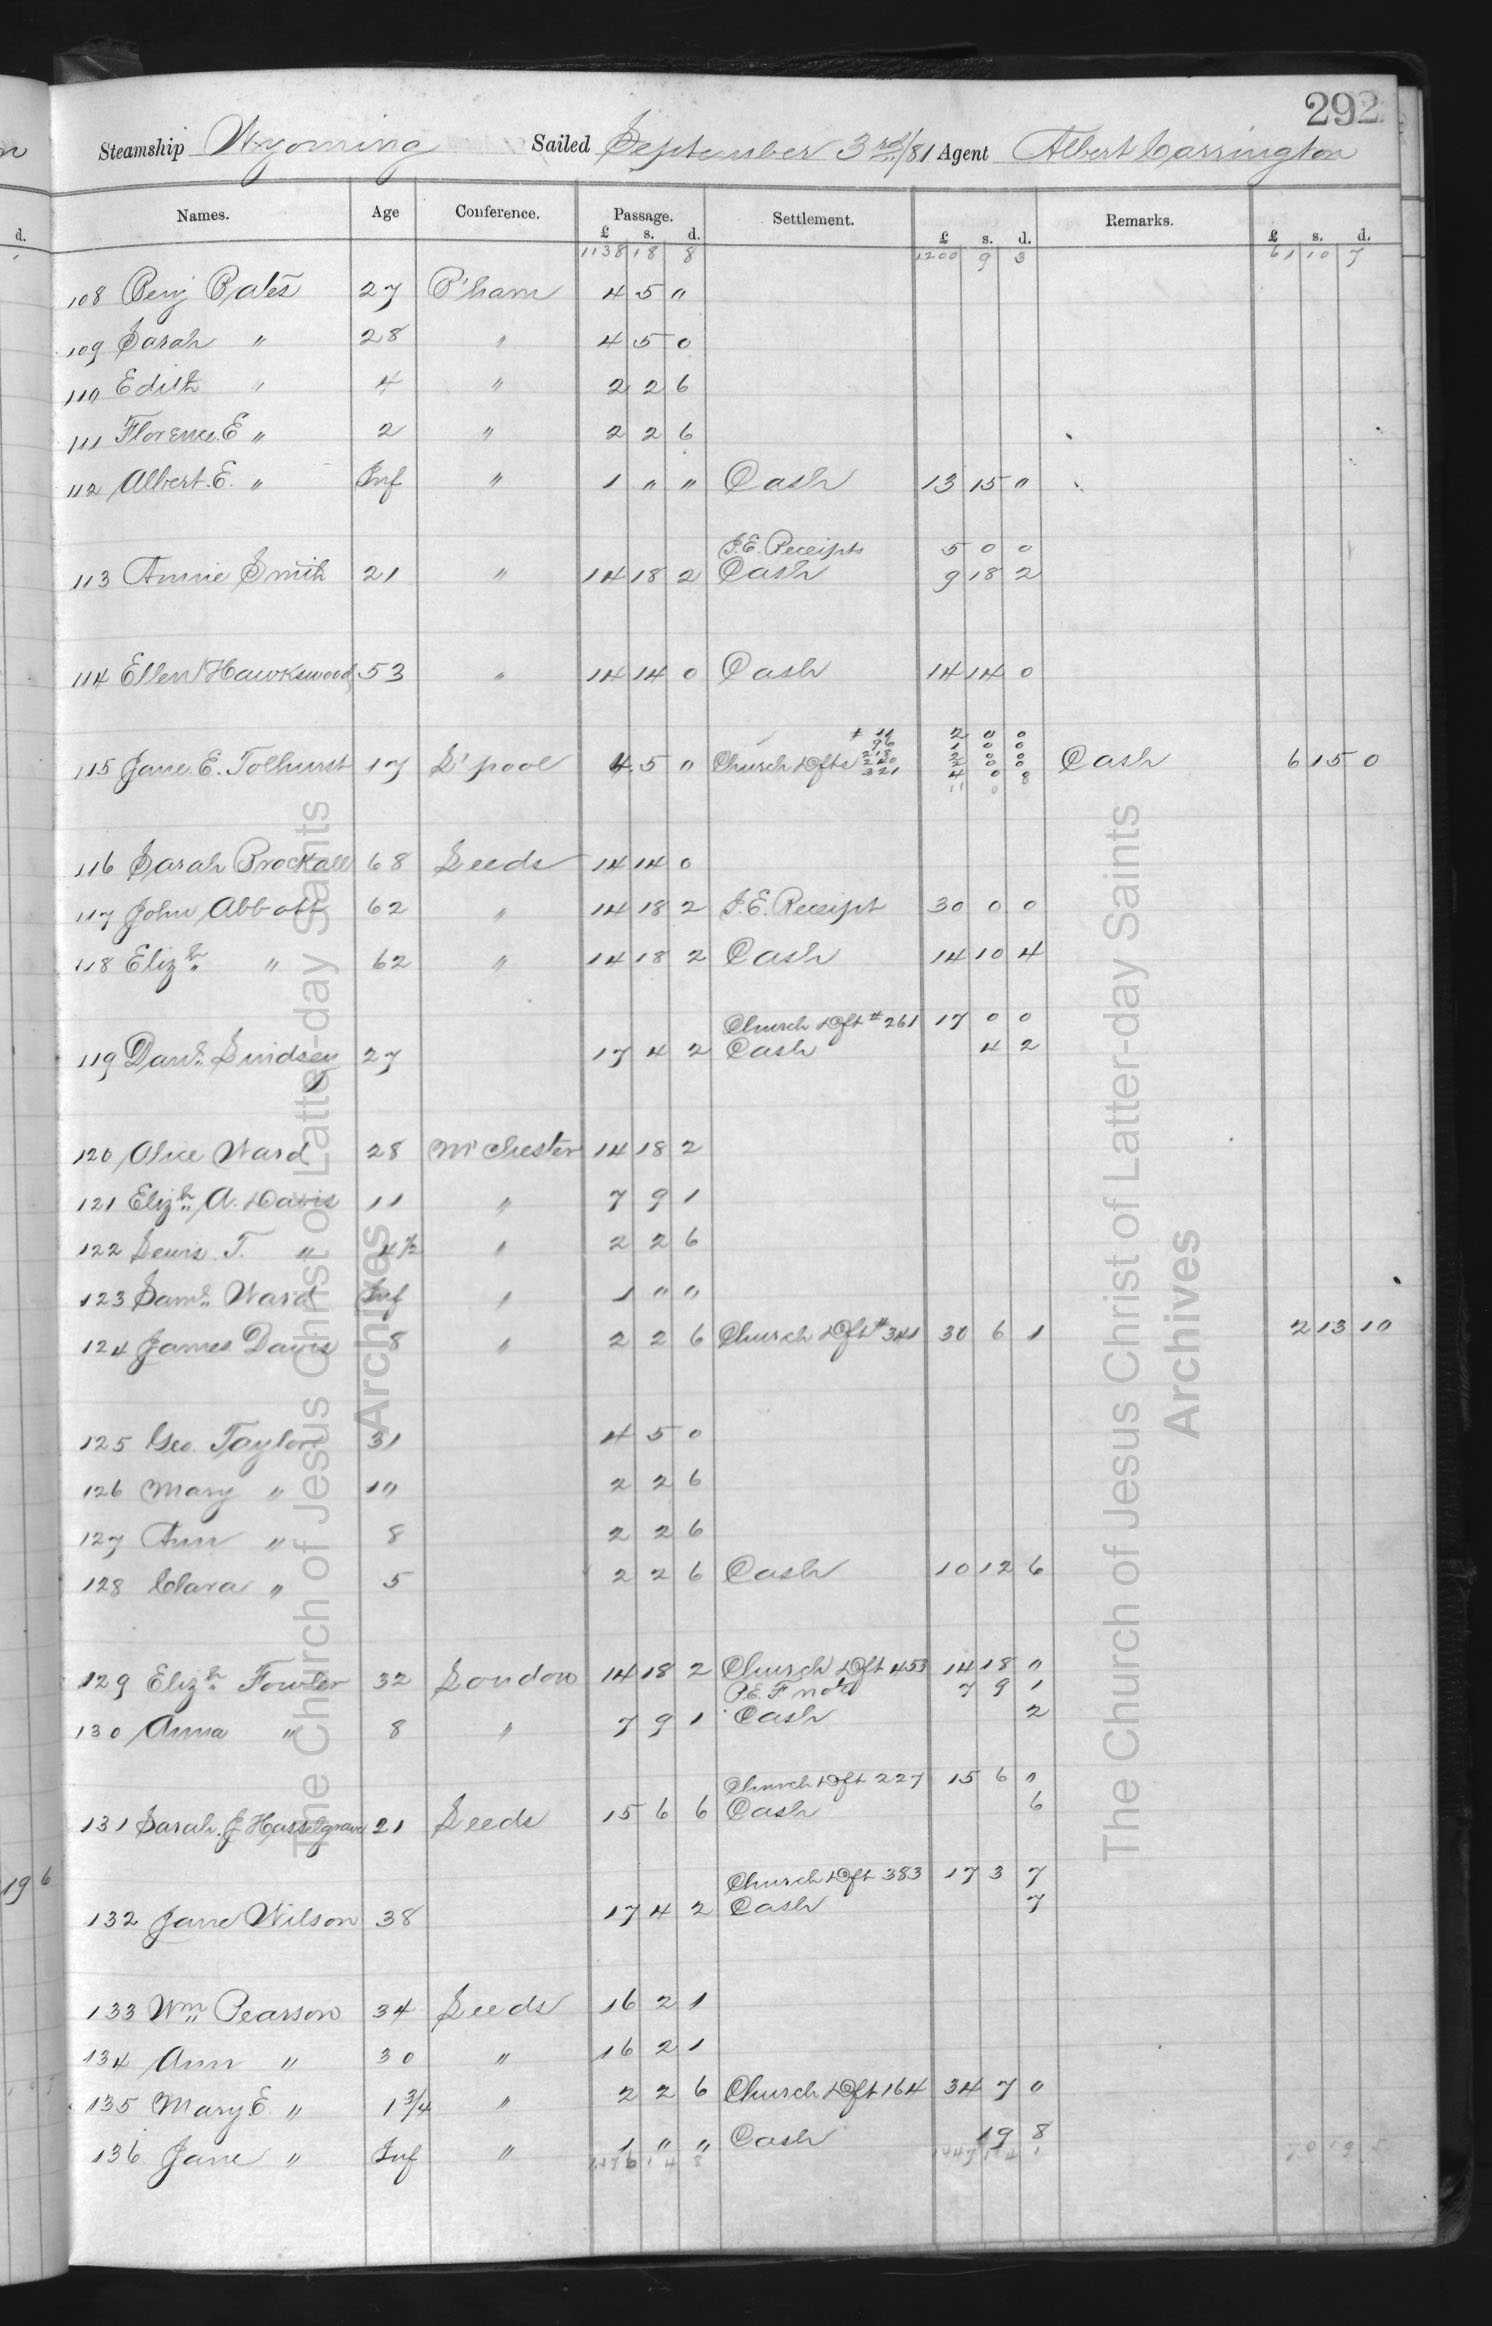 292
Steamship Wyoming Sailed September 3rd/81 Agent Albert Carrington
Names. Age Conference. Passage. Settlement. Remarks.
£ s. d. £ s. d. £ s. d.
1138 18 8 1200 9 3 61 10 7
108 Benj Bates 27 B'ham 4 5 "
109 Sarah " 28 " 4 5 0
110 Edith " 4 " 2 2 6
111 Florence E " 2 " 2 2 6
112 Albert E. " Inf " 1 " " Cash 13 15 "
I.E. Receipts 5 0 0
113 Annie Smith 21 " 14 18 2 Cash 9 18 2
114 Ellen Hawkswood 53 " 14 14 0 Cash 14 14 0
# 11 2 0 0
96 1 0 0
218 2 0 0
115 Jane E. Tolhurst 17 L'pool 4 5 " Church Dfts 240 2 0 0 Cash 6 15 0
321 4 0 8
11 0
116 Sarah Brockall 68 Leeds 14 14 0
117 John Abbott 62 " 14 18 2 I.E. Receipt 30 0 0
118 Elizh " 62 " 14 18 2 Cash 14 10 4
Church Dft #261 17 0 0
119 Danl Lindsey 27 17 4 2 Cash 4 2
120 Alice Ward 28 M'chester 14 18 2
121 Elizh A. Davis 11 " 7 9 1
122 Lewis T. " 4½ " 2 2 6
123 Saml Ward Inf " 1 " "
124 James Davis 8 " 2 2 6 Church Dft #341 30 6 1 2 13 10
125 Geo. Taylor 31 4 5 0
126 Mary " 10 2 2 6
127 Ann " 8 2 2 6
128 Clara " 5 2 2 6 Cash 10 12 6
129 Elizh Fowler 32 London 14 18 2 Church Dft 453 14 18 "
P.E.F note 7 9 1
130 Anna " 8 " 7 9 1 Cash 2
Church Dft 227 15 6 0
131 Sarah J Hasselgrave 21 Leeds 15 6 6 Cash 6
Church Dft 383 17 3 7
132 Jane Wilson 38 17 4 2 Cash 7
133 Wm Pearson 34 Leeds 16 2 1
134 Ann " 30 " 16 2 1
135 Mary E. " 1¾ " 2 2 6 Church Dft 164 34 7 0
136 Jane " Inf " 1 " " Cash 19 8
The Church of Jesus Christ of Latter-day Saints
Archives
The Church of Jesus Christ of Latter-day Saints
Archives
d.
19 6